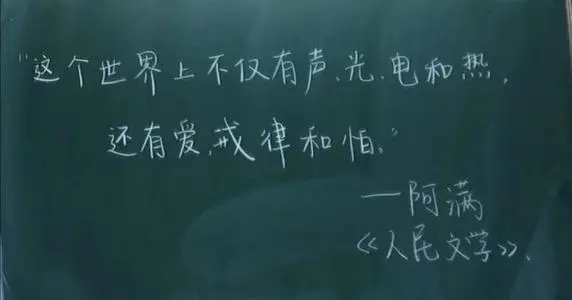 "这个世界上不仅有声、光、电和热,
还有爱、戒律和怕。"
——阿满
《人民文学》、